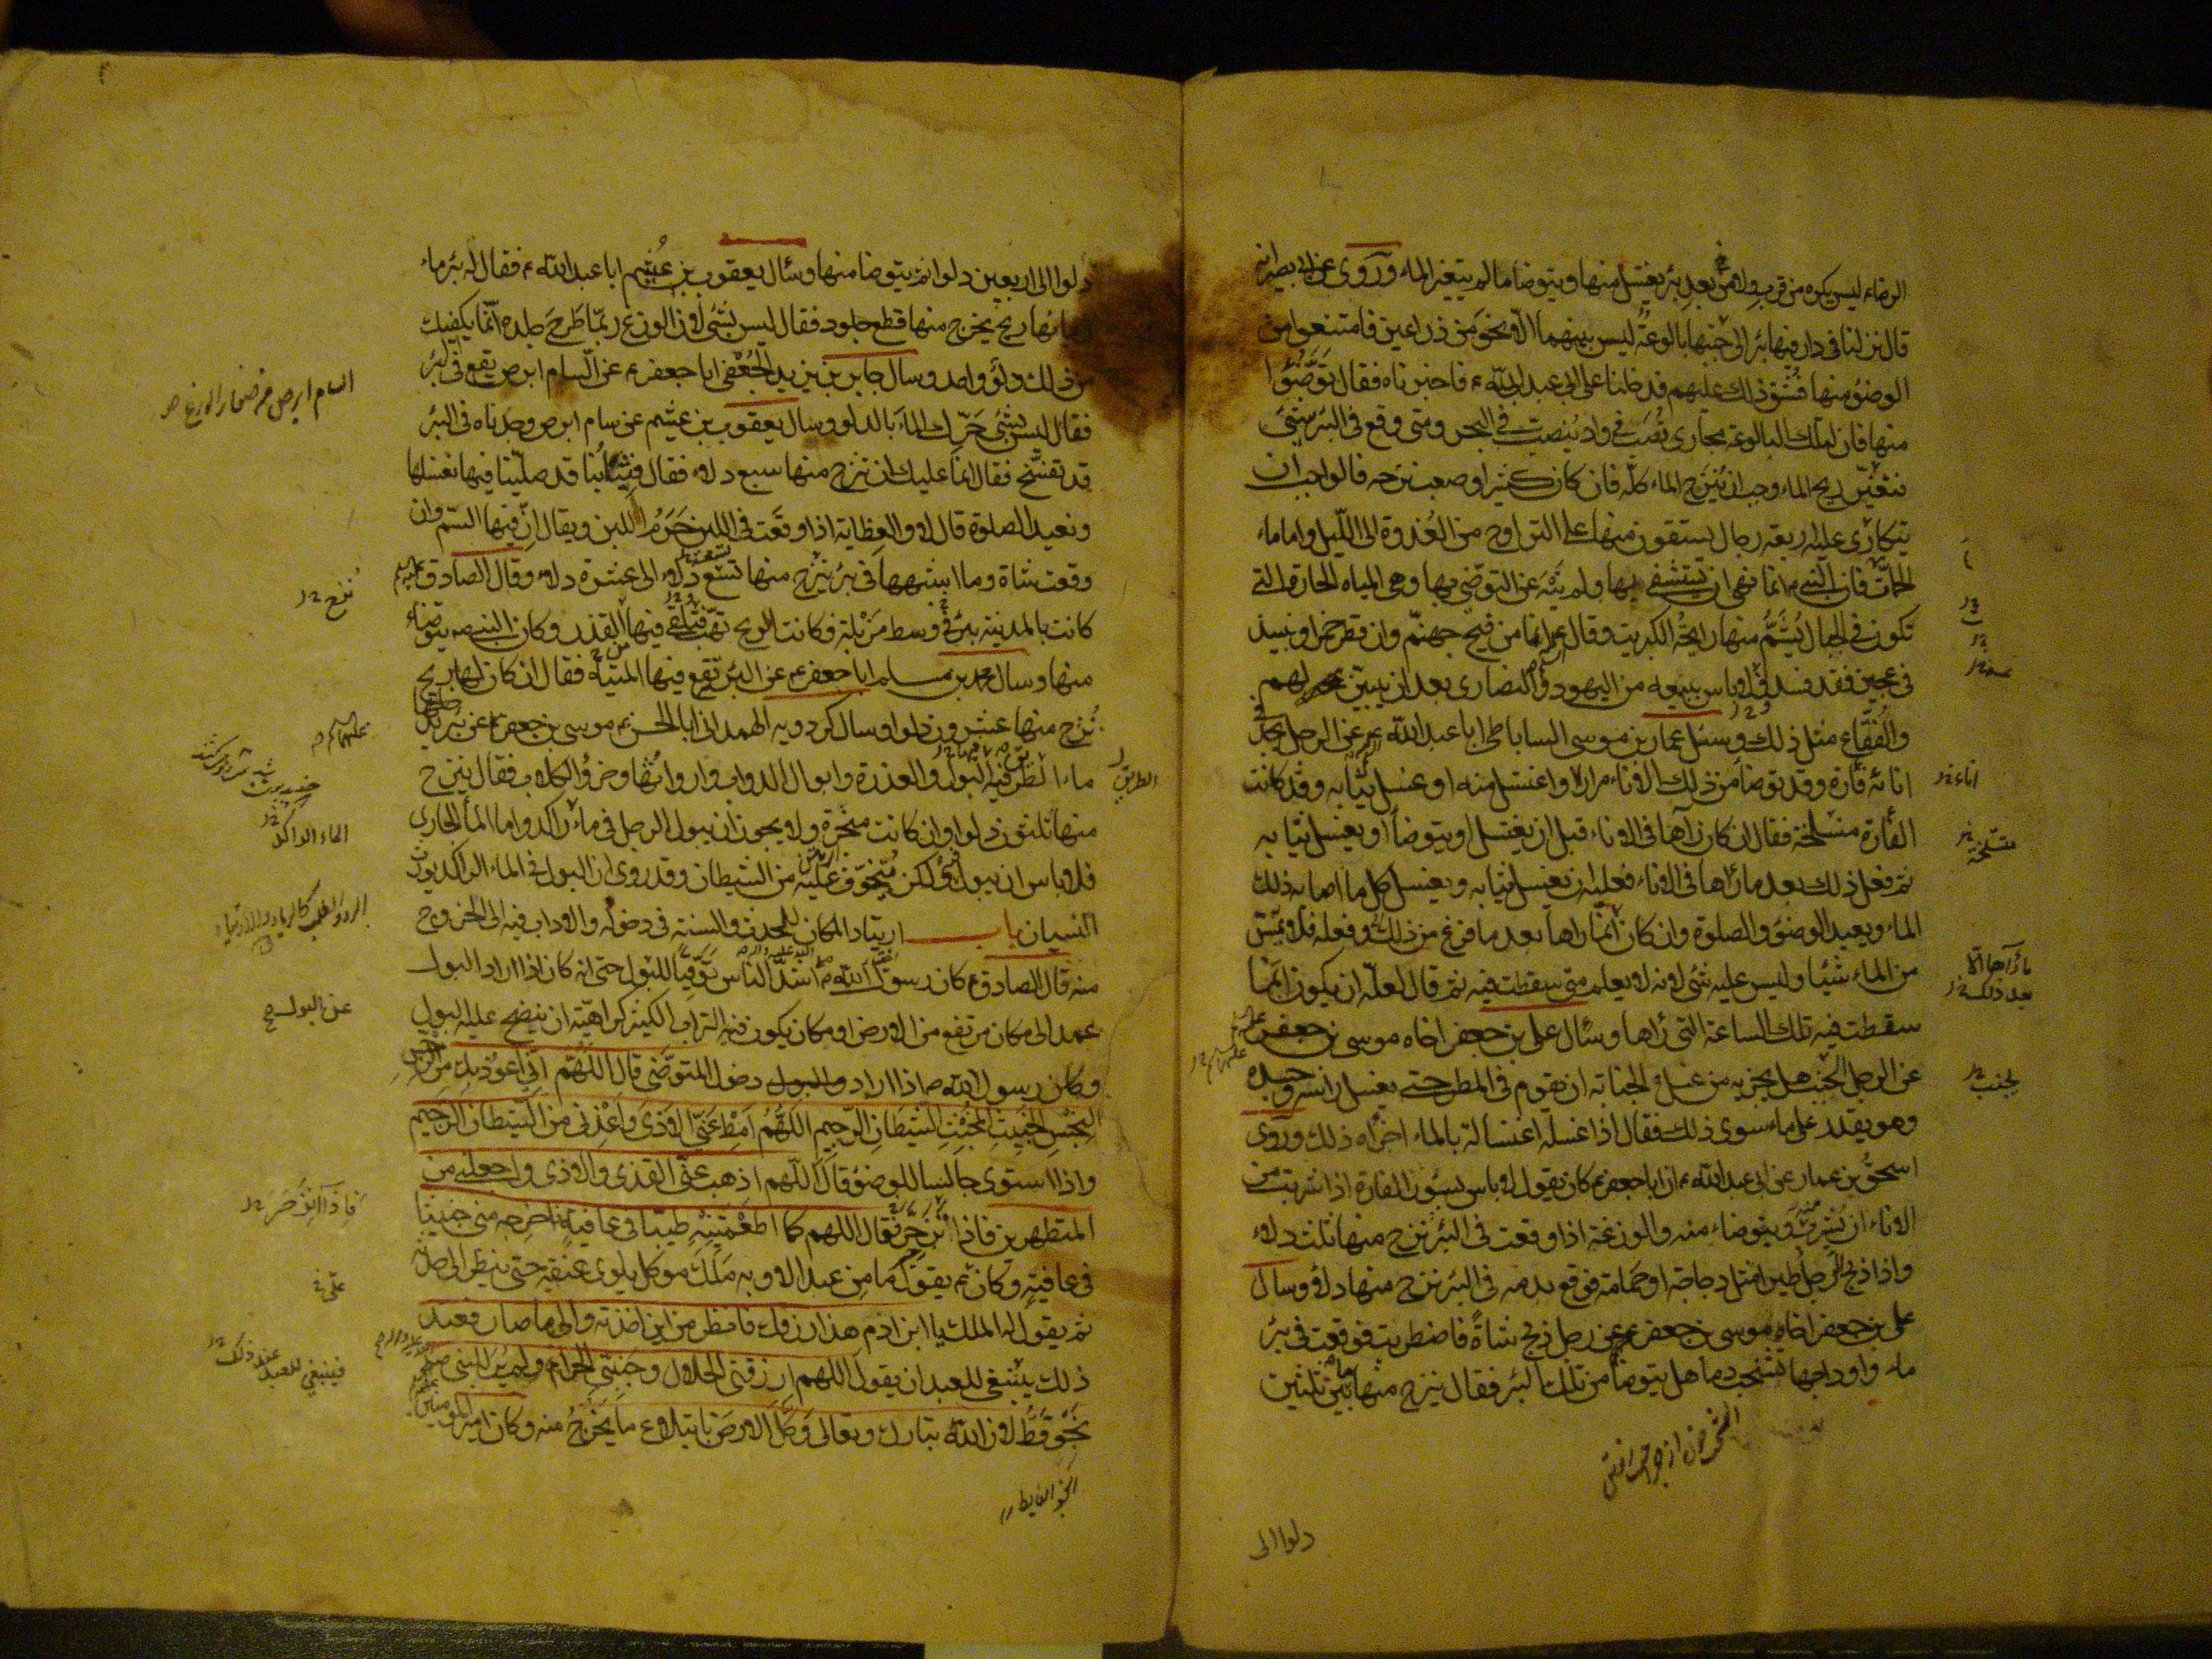 الرضاء ليس يكره من قرب ولا من بعد بئر يغتسل منها ويتوضأ ما لم يتغير الماء وروى عن ابى بصير انه
قال نزلنا فى دار فيها بئر الى جنبها بالوعة ليس بينهما الا نحو من ذراعين فامتنعوا من
الوضوء منها فشق ذلك عليهم فدخلنا على ابى عبد الله ع فاخبرناه فقال توضؤا
منها فان لتلك البالوعة مجارى تصب فى واد ينصب فى البحر ومتى وقع فى البئر شئ
فتغير ريح الماء وجب ان ينزح الماء كله فان كان كثيرا وصعب نزحه فالواجب ان
يتكارى عليه اربعة رجال يستقون منها على التراوح من الغدوة الى الليل واما ماء
الحمات فان النبى ص انما نهى ان يستشفى بها ولم ينه عن التوضى بها وهى المياه الحارة التى
تكون فى الجبال يشم منها رايحة الكبريت وقال ع انها من فيح جهنم وان قطر خمر او نبيذ
فى عجين فقد فسد فلا باس ببيعه من اليهود والنصارى بعد ان يبين لهم
والفقاع مثل ذلك وسئل عمار بن موسى الساباطى ابا عبد الله ع عن الرجل يجد فى
انائه فارة وقد توضأ من ذلك الاناء مرارا واغتسل منه او غسل ثيابه وقد كانت
الفارة منسلخة فقال ان كان رآها فى الاناء قبل ان يغتسل او يتوضأ او يغسل ثيابه
ثم فعل ذلك بعد ما رآها فى الاناء فعليه ان يغسل ثيابه ويغسل كل ما اصابه ذلك
الماء ويعيد الوضوء والصلوة وان كان انما رآها بعد ما فرغ من ذلك وفعله فلا يمس
من الماء شيئا وليس عليه شئ لانه لا يعلم متى سقطت فيه ثم قال لعله ان يكون انما
سقطت فيه تلك الساعة التى رآها وسأل على بن جعفر اخاه موسى بن جعفر
عن الرجل الجنب هل يجزيه من غسل الجنابة ان يقوم فى المطر حتى يغسل رأسه وجسده
وهو يقدر على ماء سوى ذلك فقال اذا غسله اغتساله بالماء اجزاه ذلك وروى
اسحق بن عمار عن ابى عبد الله ع ان ابا جعفر ع كان يقول لا باس بسؤر الفارة اذا شربت من
الاناء ان يشرب منه ويتوضاء منه والوزغة اذا وقعت فى البئر نزح منها ثلث دلاء
واذا ذبح الرجل طيرا مثل دجاجة او حمامة فوقع بدمه فى البئر نزح منها دلاء وسأل
على بن جعفر اخاه موسى بن جعفر ع عن رجل ذبح شاة فاضطربت فوقعت فى بئر
ماء واوداجها تشخب دما هل يتوضأ من تلك البئر فقال ينزح منها ما بين ثلثين
دلوا الى
اناء
منسلخة
بعد ذلك
الجنب
دلوا الى اربعين دلوا ثم يتوضأ منها وسأل يعقوب بن عثيم ابا عبد الله ع فقال له بئر ماء
فى مائها ريح يخرج منها قطع جلود فقال ليس بشئ لان الوزغ ربما طرح جلده انما يكفيك
من ذلك دلو واحد وسأل جابر بن يزيد الجعفى ابا جعفر ع عن السام ابرص يقع فى البئر
فقال ليس بشئ حرك الماء بالدلو وسأل يعقوب بن عثيم عن سام ابرص وجدناه فى البئر
قد تفسخ فقال انما عليك ان تنزح منها سبع دلاء فقال فثيابنا قد صلينا فيها نغسلها
ونعيد الصلوة قال لا والعظاية اذا وقعت فى اللبن حرم اللبن ويقال ان فيها السم وان
وقعت شاة وما اشبهها فى بئر ينزح منها تسع دلاء الى عشرة دلاء وقال الصادق عليه السلم
كانت بالمدينة بئر فى وسط مزبلة فكانت الريح تهب فتلقى فيها القذر وكان النبى ص يتوضاء
منها وسأل محمد بن مسلم ابا جعفر ع عن البئر تقع فيها الميتة فقال ان كان لها ريح
نزح منها عشرون دلوا وسأل كردويه الهمدانى ابا الحسن موسى بن جعفر ع عن بئر يدخلها
ماء الطريق فيه البول والعذرة وابوال الدواب وارواثها وخرؤ الكلاب فقال ينزح
منها ثلثون دلوا وان كانت مبخرة ولا يجوز ان يبول الرجل فى ماء راكد واما الماء الجارى
فلا باس ان يبول فيه ولكن يتخوف عليه من الشيطان وقد روى ان البول فى الماء الراكد يورث
النسيان باب ارتياد المكان للحدث والسنة فى دخوله والاداب فيه الى الخروج
منه قال الصادق ع كان رسول الله ص اشد الناس توقيا للبول حتى انه كان اذا اراد البول
عمد الى مكان مرتفع من الارض او مكان يكون فيه التراب الكثير كراهية ان ينضح عليه البول
وكان رسول الله ص اذا اراد دخول المتوضى قال اللهم انى اعوذ بك من الرجس
النجس الخبيث المخبث الشيطان الرجيم اللهم امط عنى الاذى واعذنى من الشيطان الرجيم
واذا استوى جالسا للوضوء قال اللهم اذهب عنى القذى والاذى واجعلنى من
المتطهرين فاذا تزحر قال اللهم كما اطعمتنيه طيبا فى عافية فاخرجه منى خبيثا
فى عافية وكان ع يقول ما من عبد الا وبه ملك موكل يلوى عنقه حتى ينظر الى حدثه
ثم يقول له الملك يا ابن ادم هذا رزقك فانظر من اين اخذته والى ما صار فعند
ذلك ينبغى للعبد ان يقول اللهم ارزقنى الحلال وجنبنى الحرام ولم ير للنبى ص
نجو قط لان الله تبارك وتعالى وكل الارض بابتلاع ما يخرج منه وكان امير المومنين
النجو الغايط
الطريق
عليهما السلم
الماء الراكد
عن البول
فينبغى للعبد عند ذلك